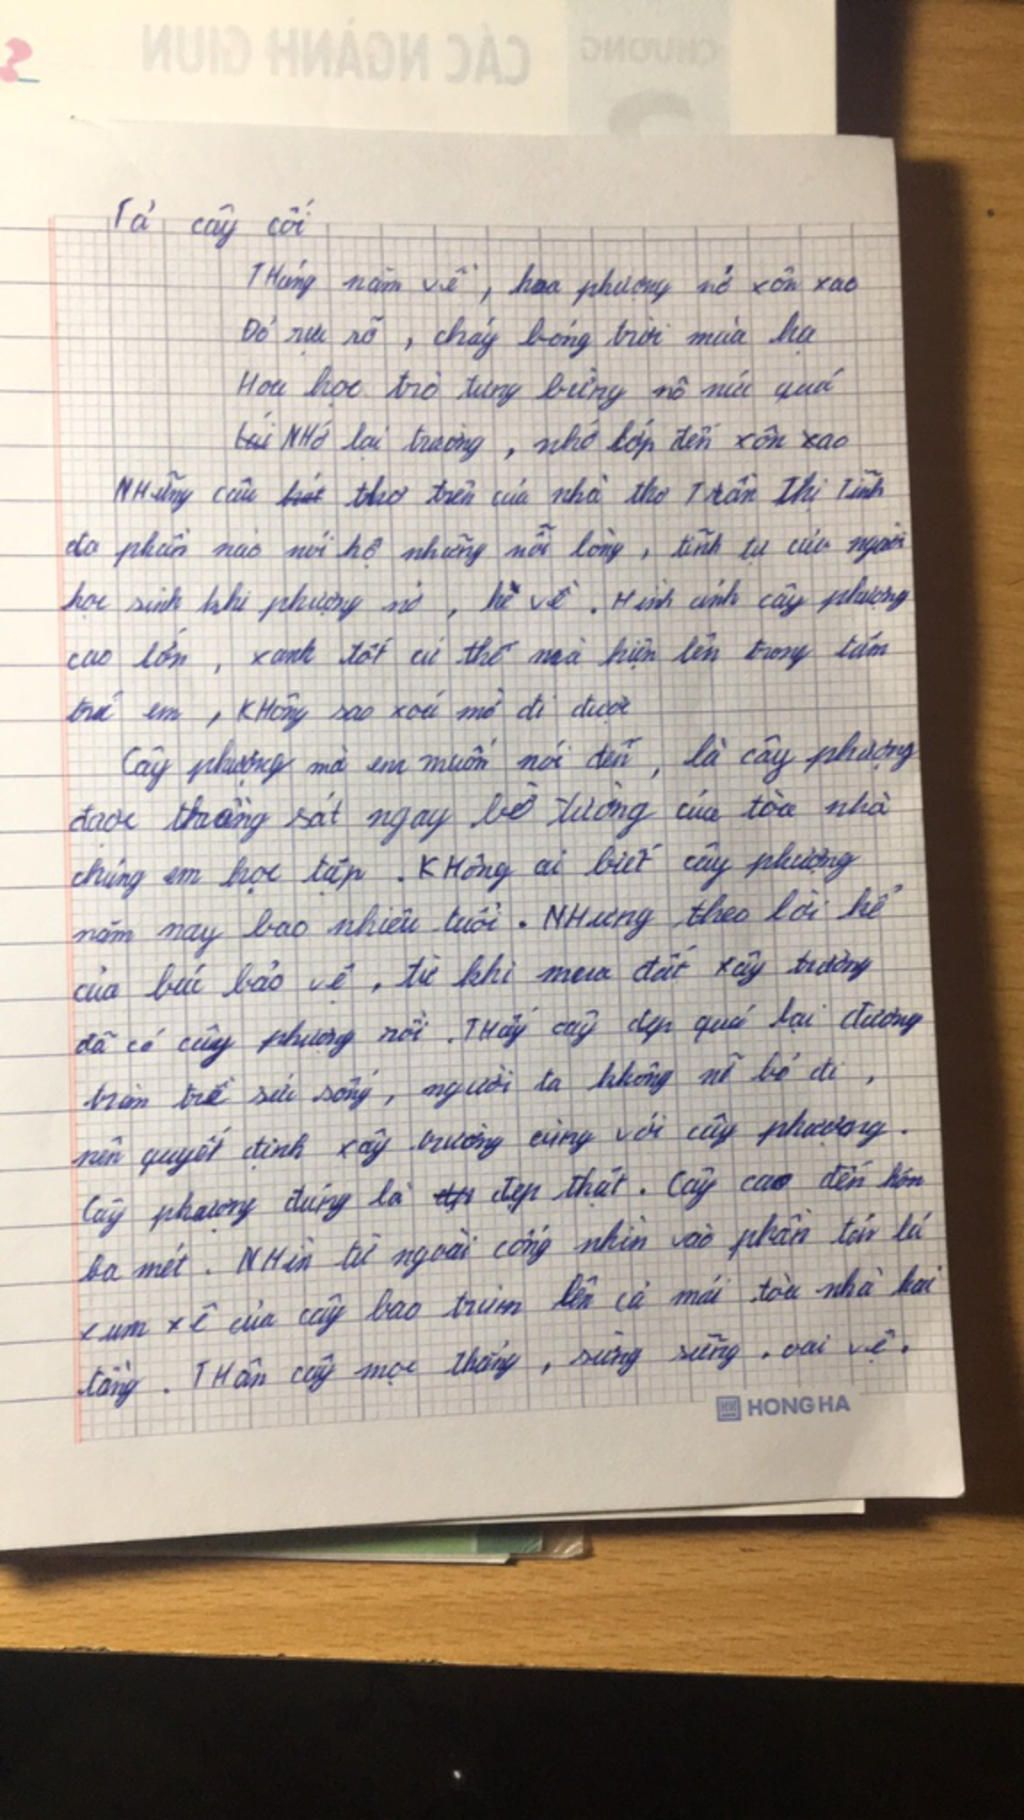 CHƯƠNG
CÁC NGÀNH GIUN
Tả cây cối
THáng năm về, hoa phượng nở xôn xao
Đỏ rực rỡ, cháy bỏng trời mùa hạ
Hoa học trò tưng bừng nô nức quá
NHớ lại trường, nhớ lớp đến xôn xao
NHững câu thơ trên của nhà thơ Trần Thị Tình
đa phần nào nói hộ những nỗi lòng, tình tự của người
học sinh khi phượng nở, hè về. Hình ảnh cây phượng
cao lớn, xanh tốt cứ thế mà hiện lên trong tâm
trí em, KHông sao xoá mờ đi được
Cây phượng mà em muốn nói đến, là cây phượng
được sát ngay bờ tường của tòa nhà
chúng em học tập. KHông ai biết cây phượng
năm nay bao nhiêu tuổi. NHưng theo lời kể
của bác bảo vệ, từ khi mua đất xây trường
đã có cây phượng rồi. THấy cây đẹp quá lại đương
tràn trề sức sống, người ta không nỡ bỏ đi,
nên quyết định xây trường cùng với cây phượng.
Cây phượng đúng là đẹp thật. Cây cao đến hơn
ba mét. NHìn từ ngoài cổng nhìn vào phần tán lá
xum xê của cây bao trùm lên cả mái tòa nhà hai
tầng. THân cây mọc thẳng, sừng sững, oai vệ.
HONG HA